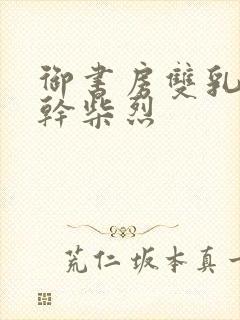 御書房雙乳
幹柴烈
荒仁坂本真一